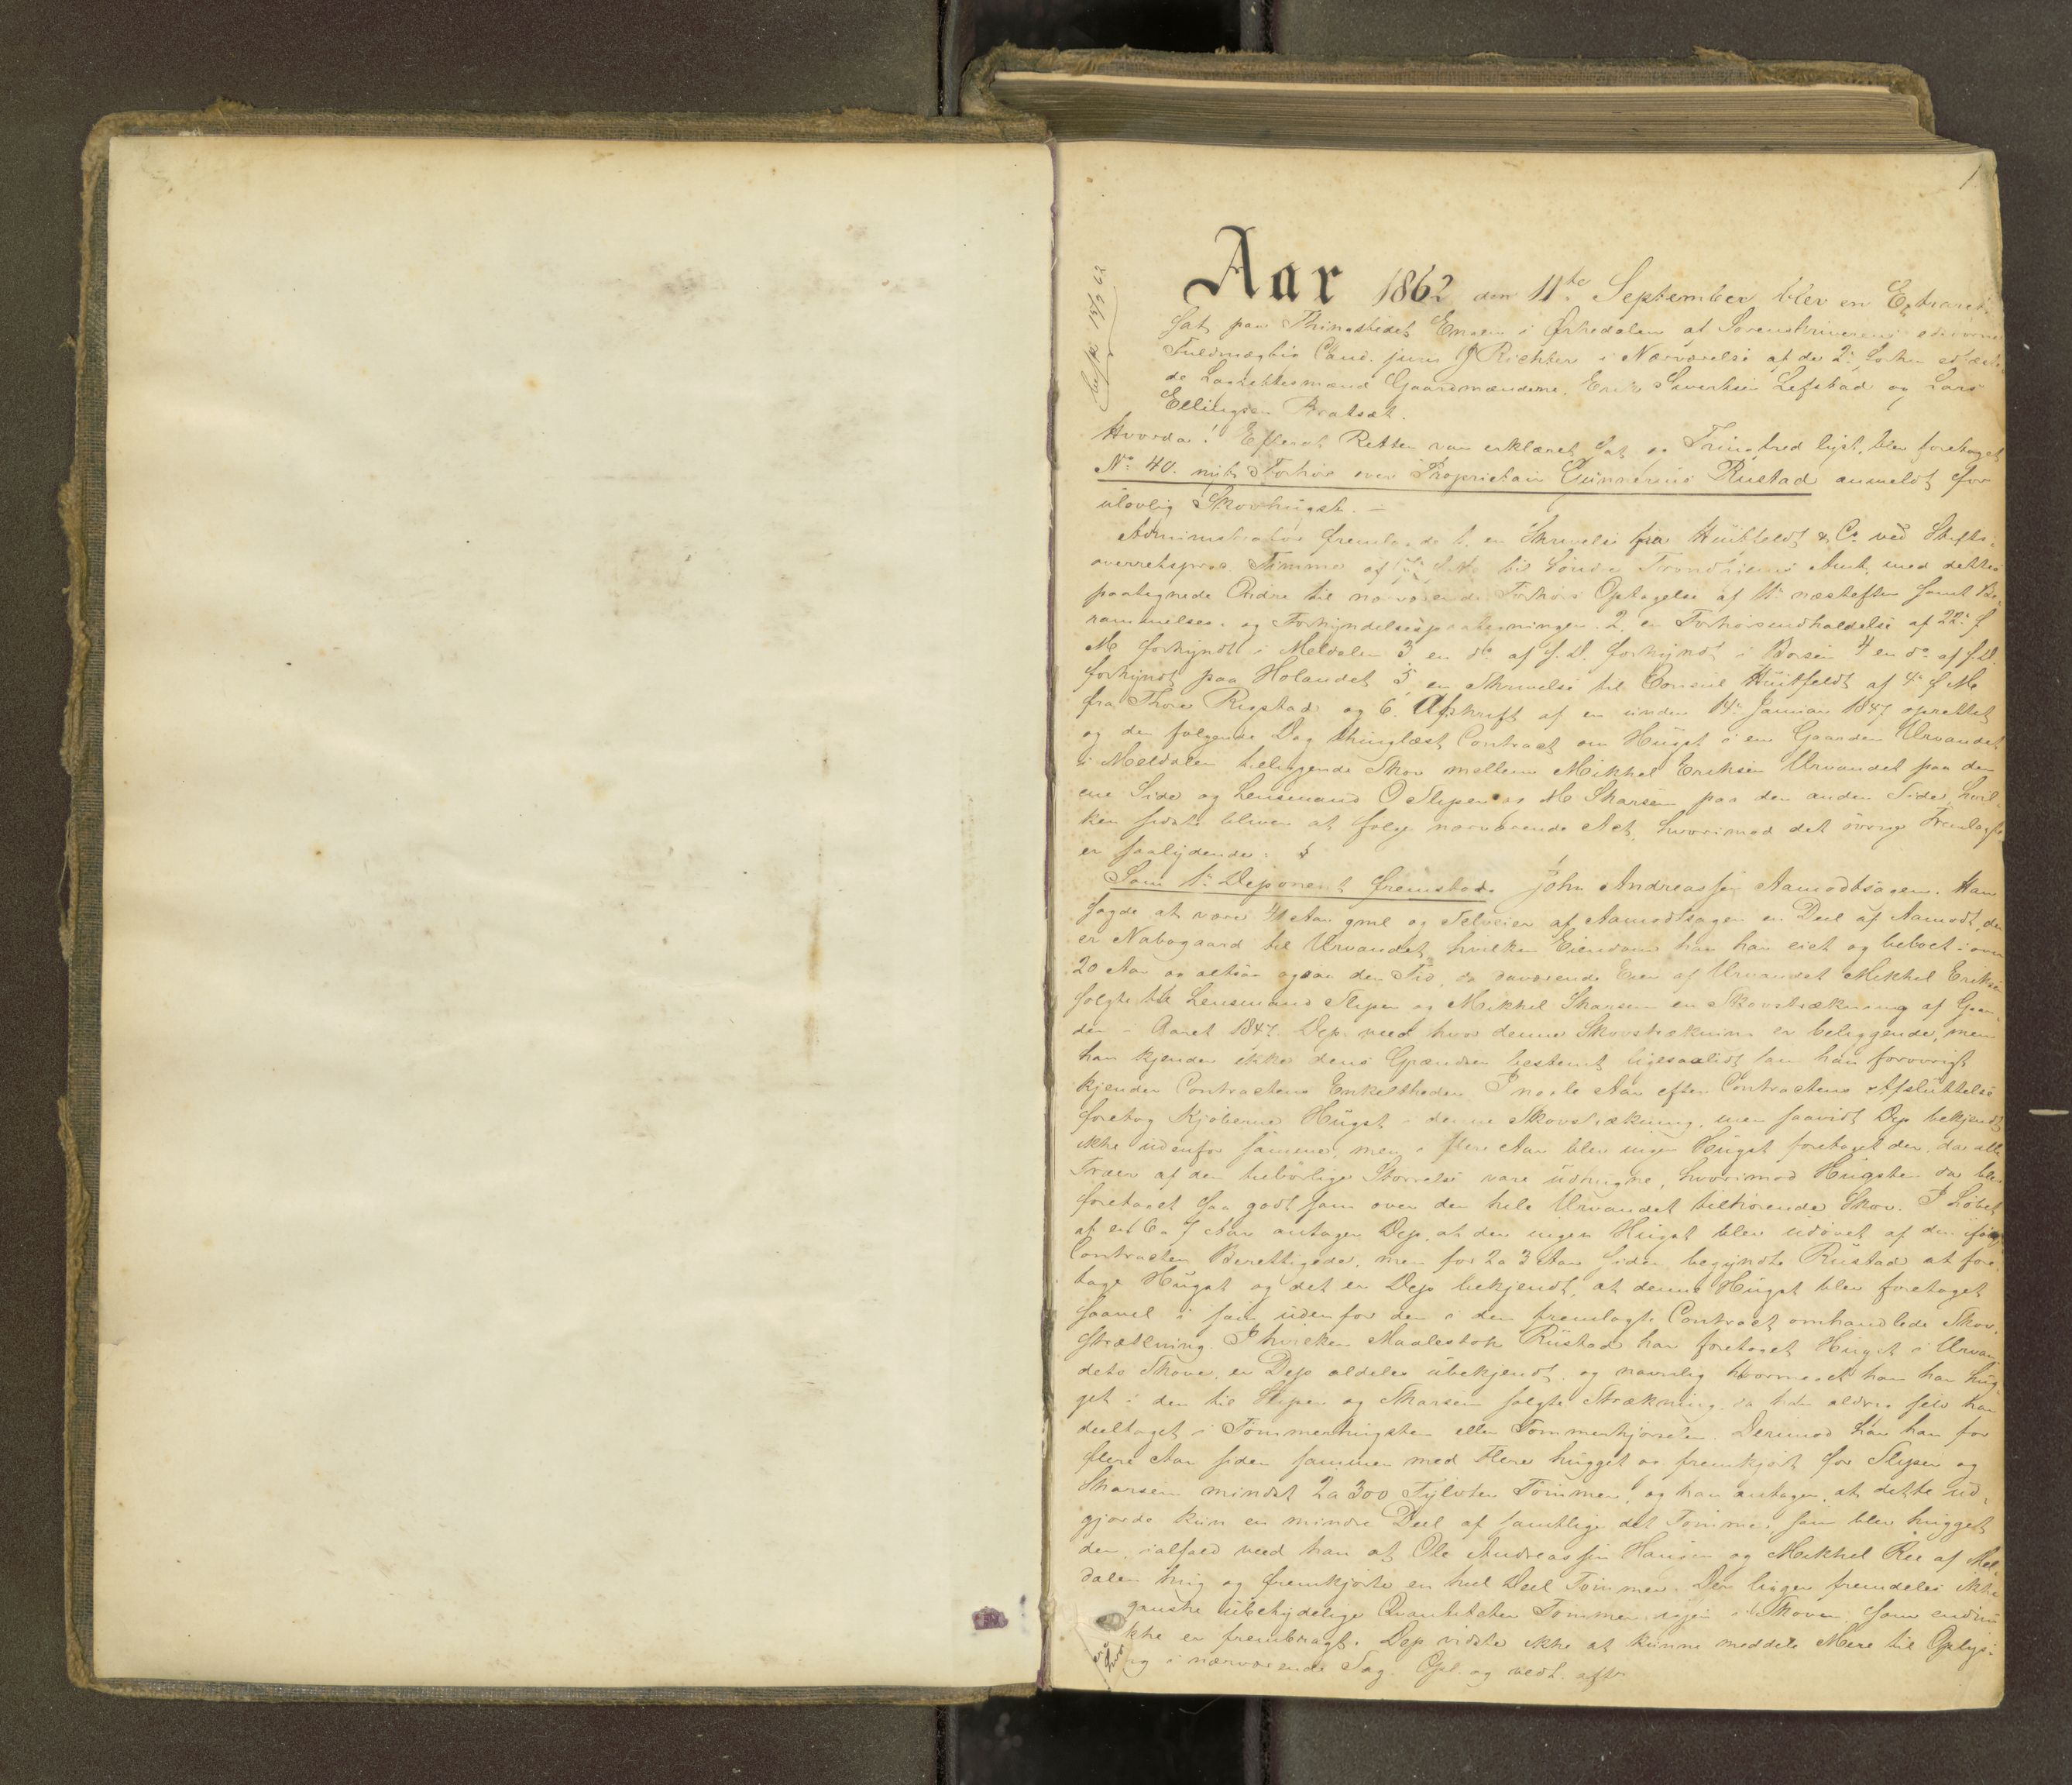 1
Aar 1862 den 11te September blev en Extraret
sat paa Thingstedet Engen i Ørkedalen af Sorenskriverens edsvorne
Fuldmægtig Cand. juris J Richter i Nærværelse af de 2de
de Laugrettesmænd Gaardmændene Erik Sivertsen Lefstad og Lars
Ellingsen Bratsæt.
Hvorda! Efterat Retten var erklæret sat og Tingfred lyst, blev foretaget
No 40. nyt Forhør over Proprietair Gunnerius Rustad anmeldt for
ulovlig Skovhugst. —
Administrator fremlagde 1. en Skrivelse fra Huitfeldt & Co ved Stifts-
overretsproc. Stimme af til Søndre Trondhjems Amt, med dettes
paategnede Ordre til nærværende Forhørs Optagelse af 11te næstefter samt Be-
rammelses- og Forkyndelsespaategninger. 2. en Forhørsudholdelse af 22de f.
M forkyndt i Meldalen 3 en do af s.D. forkyndt i Børsen 4 en do af s.D.
forkyndt paa Holandet 5. en Skrivelse til Consul Huitfeldt af 4de f M
fra Thore Rigstad og 6. Afskrift af en under 14de Januar 1847 oprettet
og den følgende Dag thinglæst Contract om Hugst i en Gaarden Urvandet
i Meldalen tilliggende Skov mellem Mikkel Eriksen Urvandet paa den
ene Side og Lensmand O Slupen og M Skarsem paa den anden Side, hvil-
ken sidste bliver at følge nærværende Act, hvorimod det øvrige Fremlagte
er saalydende:
Som 1ste Deponent fremstod John Andreassen Aamodtsagen. Han
sagde at være 41 Aar gml og Selveier af Aamodtsagen en Deel af Aamodt, der
er Nabogaard til Urvandet, hvilken Eiendom han har eiet og beboet i om
20 Aar og altsaa ogsaa den Tid, da daværende Eier af Urvandet Mikkel Eriksen
solgte til Lensmand Slupen og Mikkel Skarsem en Skovstrækning af Gaar-
den i Aaret 1847. Dep. veed hvor denne Skovstrækning er beliggende, men
han kjender ikke dens Grændser bestemt ligesaalidt som han forøvrigt
kjender Contractens Enkeltheder. I neste Aar efter Contractens Afsluttelse
foretog Kjøberne Hugst i denne Skovstrækning, men saavidt Dep bekjendt
ikke udenfor samme, men i flere Aar blev ingen Hugst foretaget der, da alle
Træer af den tilbørlige Størrelse vare udhugne, hvorimod Hugsten da blev
foretaget saa godt som over den hele Urvandet tilhørende Skov. I Løbet
af en 6 a 7 Aar antager Dep. at der ingen Hugst blev udøvet af de ifølge
Contracten Berettigede, men for 2 a 3 Aar siden begyndte Rustad at fore-
tage Hugst og det er Dep bekjendt, at denne Hugst blev foretaget
saavel i som udenfor den i den fremlagte Contract omhandlede Skov-
strækning. I hvilken Maalestok Rustad har foretaget Hugst i Urvan-
dets Skove, er Dep aldeles ubekjendt, og navnlig hvormeget han har hug-
get i den til Slupen og Skarsem solgte Strækning, da han aldrig selv har
deeltaget i Tømmerhugsten eller Tømmerkjørselen. Derimod har han for
flere Aar siden sammen med Flere hugget og fremkjørt for Slupen og
Skarsem mindst 2 a 300 Tylvter Tømmer, og han antager, at dette ud-
gjorde kun en mindre Deel af samtlige det Tømmer, som blev hugget
der, ialfald veed han at Ole Andreassen Hansen og Mikkel Ree af Mel-
dalen hug og fremkjørte en hel Deel Tømmer. Der ligger fremdeles ikke
ganske ubetydelige Qvantiteter Tømmer igjen i Skoven, som endnu
ikke er fremdragt. Dep vidste ikke at kunne meddele Mere til Oplys-
ng i nærværende Sag. Opl. og vedt. aftr